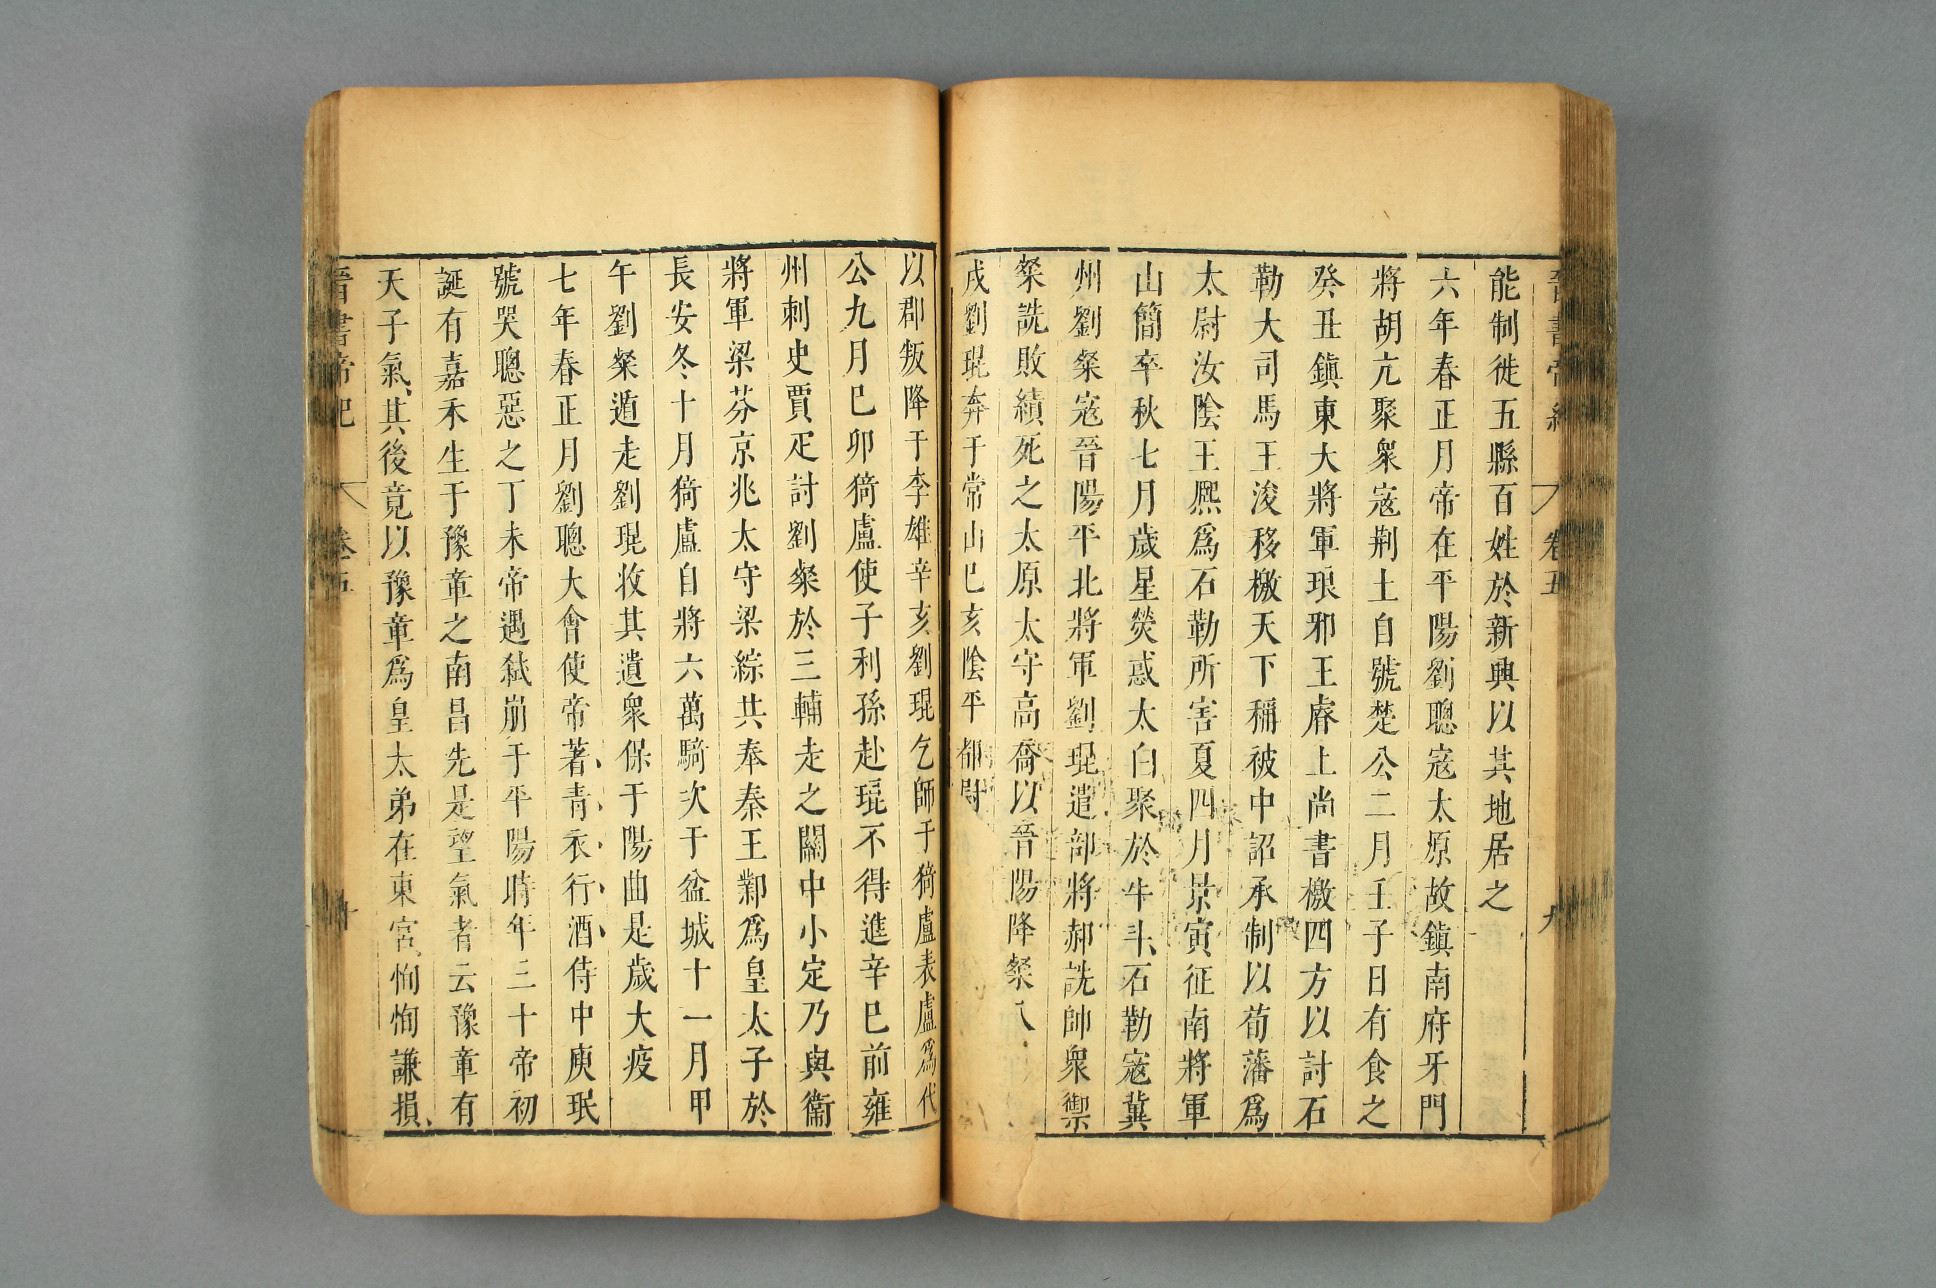 晉書帝紀 卷五 九
能制徙五縣百姓於新興以其地居之
六年春正月帝在平陽劉聰寇太原故鎮南府牙門
將胡亢聚衆寇荆土自號楚公二月壬子日有食之
癸丑鎮東大將軍琅邪王睿上尚書檄四方以討石
勒大司馬王浚移檄天下稱被中詔承制以荀藩爲
太尉汝陰王熈爲石勒所害夏四月景寅征南將軍
山簡卒秋七月歲星熒惑太白聚於牛斗石勒寇冀
州劉粲寇晉陽平北將軍劉琨遣部將郝詵帥衆禦
粲詵敗績死之太原太守高喬以晉陽降粲八
戌劉琨奔于常山己亥陰平都尉
以郡叛降于李雄辛亥劉琨乞師于猗盧表盧爲代
公九月己卯猗盧使子利孫赴琨不得進辛巳前雍
州刺史賈疋討劉粲於三輔走之關中小定乃與衞
將軍梁芬京兆太守梁綜共奉秦王鄴爲皇太子於
長安冬十月猗盧自將六萬騎次于盆城十一月甲
午劉粲遁走劉琨收其遺衆保于陽曲是歲大疫
七年春正月劉聰大會使帝著青衣行酒侍中庾珉
號哭聰惡之丁未帝遇弒崩于平陽時年三十帝初
誕有嘉禾生于豫章之南昌先是望氣者云豫章有
天子氣其後竟以豫章爲皇太弟在東宮恂恂謙損
晉書帝紀 卷五